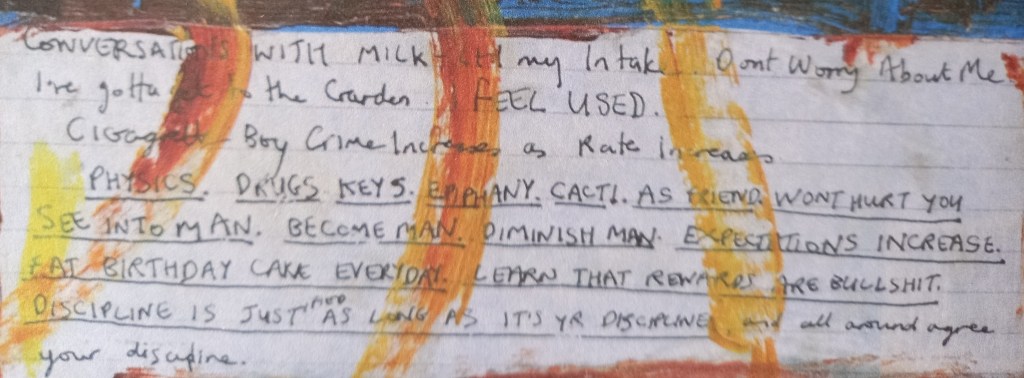 CONVERSATIONS WITH MILK my Intake. Dont Worry About Me
I've gotta to the Garden. FEEL USED.
Cigarette Boy Crime Increases as Rate increases
PHYSICS. DRUGS KEYS. EPIPHANY. CACTI. AS FRIEND. WONT HURT YOU
SEE INTO MAN. BECOME MAN. DIMINISH MAN. EXPECTATIONS INCREASE.
EAT BIRTHDAY CAKE EVERYDAY. LEARN THAT REWARDS ARE BULLSHIT.
DISCIPLINE IS JUSTIFIED AS LONG AS IT'S YR DISCIPLINE and all around agree
your discipline.